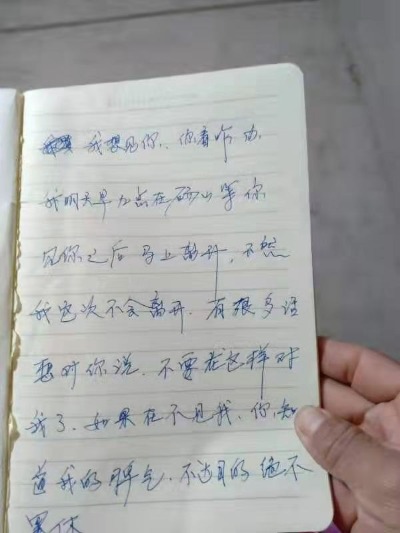 我想见你,你看咋办
我明天早九点在砀山等你
见你之后马上离开,不然
我这次不会离开.有很多话
想对你说.不要在这样对
我了.如果在不见我.你知
道我的脾气.不达目的绝不
罢休